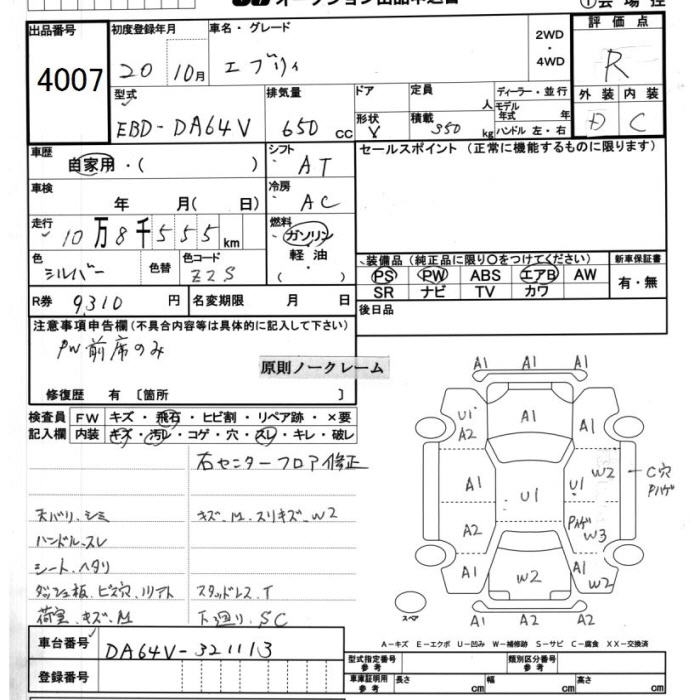 オークション出品申込書
①会場控
出品番号
4007
初度登録年月
20 10月
車名・グレード
エブリィ
2WD
・
4WD
評価点
R
型式
EBD-DA64V
排気量
650 cc
ドア
形状
V
定員
人
積載
350 kg
ディーラー・並行
モデル
年式
年
ハンドル 左・右
外装 内装
D C
車歴
自家用・( )
シフト
AT
セールスポイント (正常に機能するものに限ります)
車検
年 月( 日)
冷房
AC
走行
10万8千555km
燃料
ガソリン
軽油
・
( )
色
シルバー
色替
色コード
Z2S
装備品 (純正品に限り○をつけてください)
新車保証書
PS PW ABS エアB AW
SR ナビ TV カワ
有・無
R券 9,310 円
名変期限 月 日
後日品
注意事項申告欄 (不具合内容等は具体的に記入して下さい)
PW前席のみ
原則ノークレーム
修復歴 有 〔箇所 〕
検査員
記入欄
FW キズ・飛石・ヒビ割・リペア跡・×要
内装 キズ・汚レ・コゲ・穴・スレ・キレ・破レ
右センターフロア修正
天バリ、シミ
キズ、M、スリキズ、W2
ハンドル、スレ
シート、ヘタリ
ダッシュ板、ビス穴、リアト
スタッドレス、T
荷室、キズ、M
下廻り、SC
A1 A1 A1
U1
A2
A1
A1
W2
C穴
Pハゲ
U1
U1
A2
Pハゲ
W3
A1
W2
A1
W2
スペア
A1 A2 A2
車台番号
DA64V-321113
A-キズ E-エクボ U-凹み W-補修跡 S-サビ C-腐食 XX-交換済
登録番号
型式指定番号
参考
類別区分番号
参考
車庫証明用
参考
長さ cm
幅 cm
高さ cm